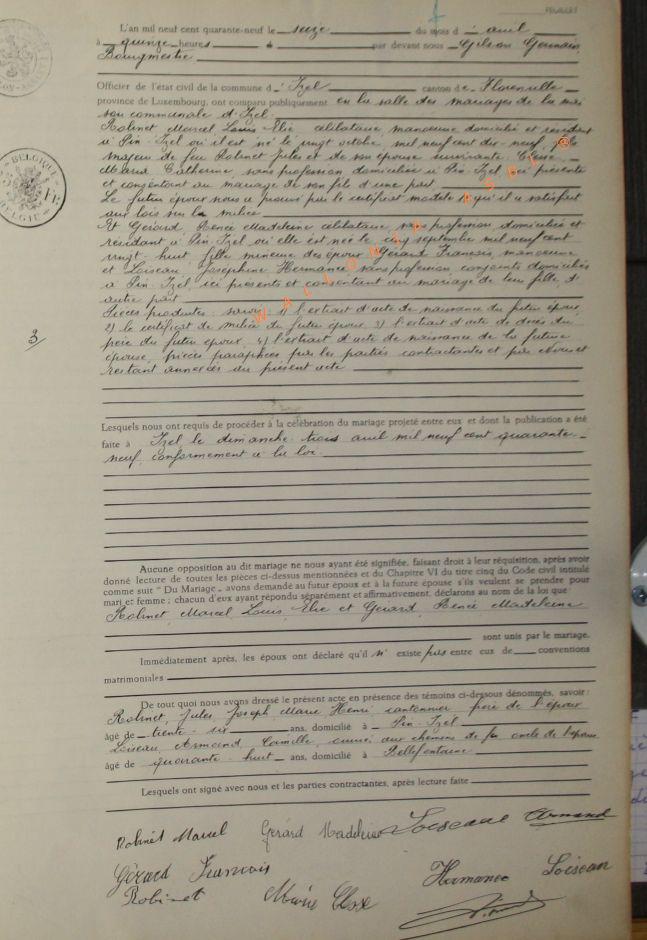 FEUILLET
L'an mil neuf cent quarante-neuf le seize du mois d'avril
à quinze heures par devant nous Gilson Germain
Bourgmestre
Officier de l'état civil de la commune d'Izel canton de Florenville
province de Luxembourg, ont comparu publiquement en la salle des mariages de la mai
son communale d'Izel.
Robinet Marcel Louis Elie célibataire, manoeuvre domicilié et résidant
à Pin-Izel où il est né le vingt octobre mil neuf cent dix-neuf, fils
majeur de feu Robinet Jules et de son épouse survivante
Marie Catherine, sans profession domiciliée à Pin-Izel, ici présente
et consentant au mariage de son fils d'une part.
Le futur époux nous a prouvé par le certificat modèle qu'il a satisfait
aux lois sur la milice
Et Gérard, Renée Madeleine célibataire, sans profession domiciliée et
résidant à Pin-Izel où elle est née le cinq septembre mil neuf cent
vingt-huit, fille mineure des époux Gérard François, manoeuvre
et Loiseau Joséphine Hermance, sans profession, conjoints domiciliés
à Pin-Izel ici présents et consentant au mariage de leur fille d'
autre part.
Pièces produites savoir 1) l'extrait d'acte de naissance du futur époux,
2) le certificat de milice du futur époux, 3) l'extrait d'acte de décès du
père du futur époux, 4) l'extrait d'acte de naissance de la future
épouse, pièces paraphées par les parties contractantes et par Nous et
restant annexées au présent acte
WALLONIA ASBL ®
BELGIQUE
BELGIË
3/
Lesquels nous ont requis de procéder à la célébration du mariage projeté entre eux et dont la publication a été
faite à Izel le dimanche trois avril mil neuf cent quarante-
neuf, conformément à la loi.
Aucune opposition au dit mariage ne nous ayant été signifiée, faisant droit à leur réquisition, après avoir
donné lecture de toutes les pièces ci-dessus mentionnées et du Chapitre VI du titre cinq du Code civil intitulé
comme suit " Du Mariage „ avons demandé au futur époux et à la future épouse s'ils veulent se prendre pour
mari et femme ; chacun d'eux ayant répondu séparément et affirmativement, déclarons au nom de la loi que :
Robinet Marcel Louis Elie et Gérard, Renée Madeleine
sont unis par le mariage.
Immédiatement après, les époux ont déclaré qu'il n'existe pas entre eux de conventions
matrimoniales
De tout quoi nous avons dressé le présent acte en présence des témoins ci-dessous dénommés, savoir :
Robinet, Jules Joseph Marie Henri cantonnier frère de l'époux
âgé de trente-six ans, domicilié à Pin-Izel
Loiseau, Armand, Camille, ouvrier aux chemins de fer, oncle de l'épouse
âgé de quarante-huit ans, domicilié à Bellefontaine
Lesquels ont signé avec nous et les parties contractantes, après lecture faite
Robinet Marcel Gérard Madeleine Loiseau Armand
Gérard François Hermance Loiseau
Robinet Marie